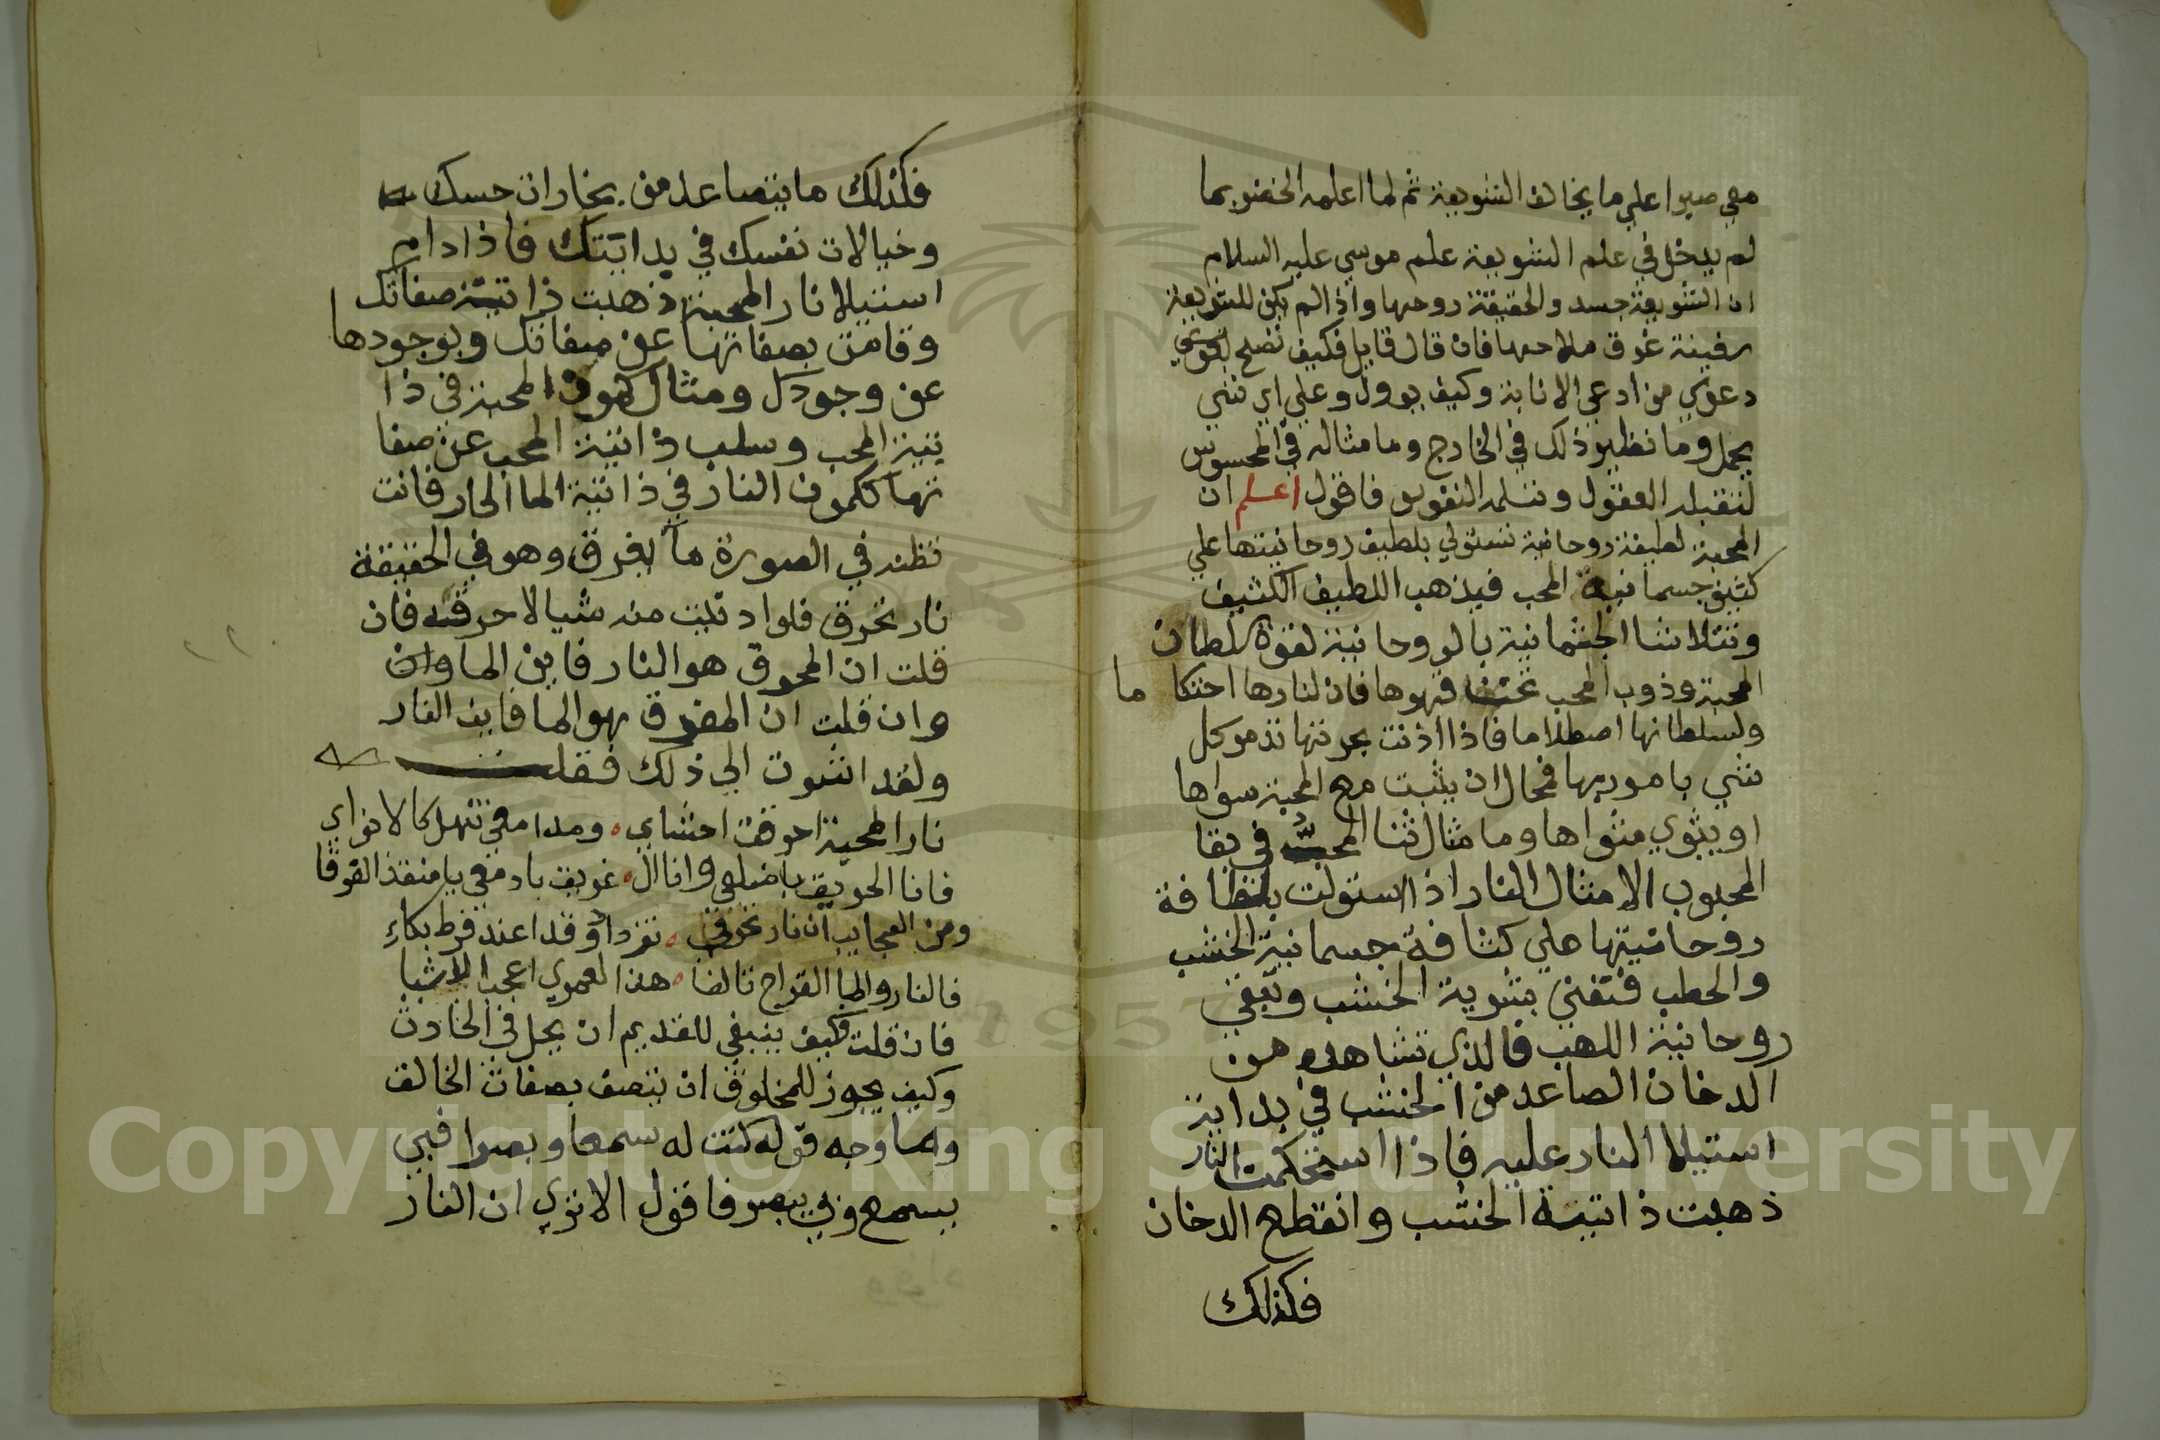 معي صبرا علي ما يخالف الشريعة ثم لما اعلمه الخضر بما
لم يدخل في علم الشريعة علم موسي عليه السلام
ان الشريعة جسد والحقيقة روحها واذا لم يكن للشريعة
سفينة غرق ملاحها فان قال قايل فكيف تصح
دعوي من ادعي الانابة وكيف يوول وعلي اي شي
يحمل وما نظير ذلك في الخارج وما مثاله في المحسوس
لتقبله العقول وتسلمه النفوس فاقول اعلم ان
المحبة لطيفة روحانية تستولي بلطيف روحانيتها علي
كثيف جسمانية المحب فيذهب اللطيف الكثيف
وتتلاشا الجثمانية بالروحانية لقوة سلطان
المحبة وذوب المحب تحت قهرها فان لنارها احتكا ما
ولسلطانها اصطلاما فاذا اذنت بحرقتها تدمر كل
شي بامر ربها فمحال ان يثبت مع المحبة سواها
او يثوي مثواها وما مثال فنا المحب في بقا
المحبوب الا مثال النار اذا استولت بلطافة
روحانيتها علي كثافة جسمانية الخشب
والحطب فتفني بشرية الخشب وتبقي
روحانية اللهب فالذي تشاهده من
الدخان الصاعد من الخشب في بداية
استيلا النار عليه فاذا استحكمت النار
ذهبت ذاتية الخشب وانقطع الدخان
فكذلك
فكذلك ما يتصاعد من بخارات حسك
وخيالات نفسك في بدايتك فاذا دام
استيلا نار المحبة ذهبت ذاتية صفاتك
وقامت بصفاتها عن صفاتك وبوجودها
عن وجودك ومثال كمون المحبة في ذا
تية المحب وسلب ذاتية المحب عن صفا
تها ككمون النار في ذاتية الما الحار فانت
تظنه في الصورة ما يغرق وهو في الحقيقة
نار تحرق فلو ادنيت منه شيا لاحرقته فان
قلت ان المحرق هو النار فاين الما وان
وان قلت ان المغرق هو الما فاين النار
ولقد اشرت الي ذلك فقلت
نار المحبة احرقت احشاي ومدامعي تنهل كالانواي
فانا الحريق باضلعي وانا ال غريق بادمعي يا منقذ الغرقا
ومن العجايب ان نار تحرقي تزداد وقدا عند فرط بكاء
فالنار والما القراح تالفا هذا لعمري اعجب الاشيا
فان قلت وكيف ينبغي للقديم ان يحل في الحادث
وكيف يجوز للمخلوق ان يتصف بصفات الخالف
وما وجه قوله كنت له سمعا وبصرا فبي
يسمع وبي يبصر فاقول الا تري ان النار
Copyright © King Saud University
1957